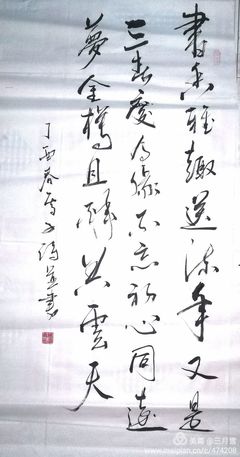 書香雅趣送流年又是
三春慶緣不忘初心同
夢金樽且醉共雲天
丁酉春並書
美篇 @三月雪
www.meipian.cn/c/474208